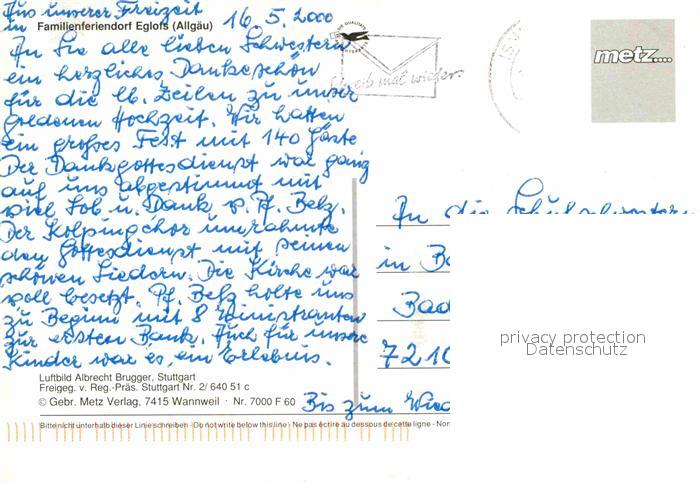 Aus unserer Freizeit
in Familienferiendorf Eglofs (Allgäu) 16.5.2000
An Sie alle lieben Schwestern
ein herzliches Dankeschön
für die lb. Zeilen zu unser
goldenen Hochzeit. Wir hatten
ein großes Fest mit 140 Gäste
Der Dankgottesdienst war ganz
auf uns abgestimmt mit
viel Lob u. Dank v. Pf. Belz.
Der Kolpingchor umrahmte
den Gottesdienst mit seinen
schönen Liedern. Die Kirche war
voll besetzt. Pf. Belz holte uns
zu Beginn mit 8 Ministranten
zur ersten Bank. Auch für unsere
Kinder war es ein Erlebnis.
Luftbild Albrecht Brugger, Stuttgart
Freigeg. v. Reg.-Präs. Stuttgart Nr. 2/ 640 51 c
© Gebr. Metz Verlag, 7415 Wannweil · Nr. 7000 F 60
Bis zum Wied
Bitte nicht unterhalb dieser Linie schreiben · Do not write below this line · Ne pas écrire au dessous de cette ligne · Non
Schreib mal wieder
metz....
An die Schulschwestern
in Ba
Bad
7210
privacy protection
Datenschutz